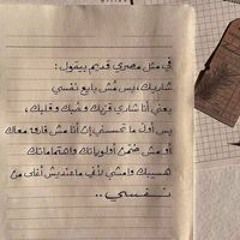 في مثل مصري قديم بيقول :
شاريك، بس مُش بايع نفسي
يعني أنا شاري قربك وحُبك وقلبك،
بس أول ما تحسسني إن أنا مش فارق معاك
أو مش ضمن أولوياتك واهتماماتك
هسيبك وامشي لأني ماعنديش أغلى من
نفسي ..